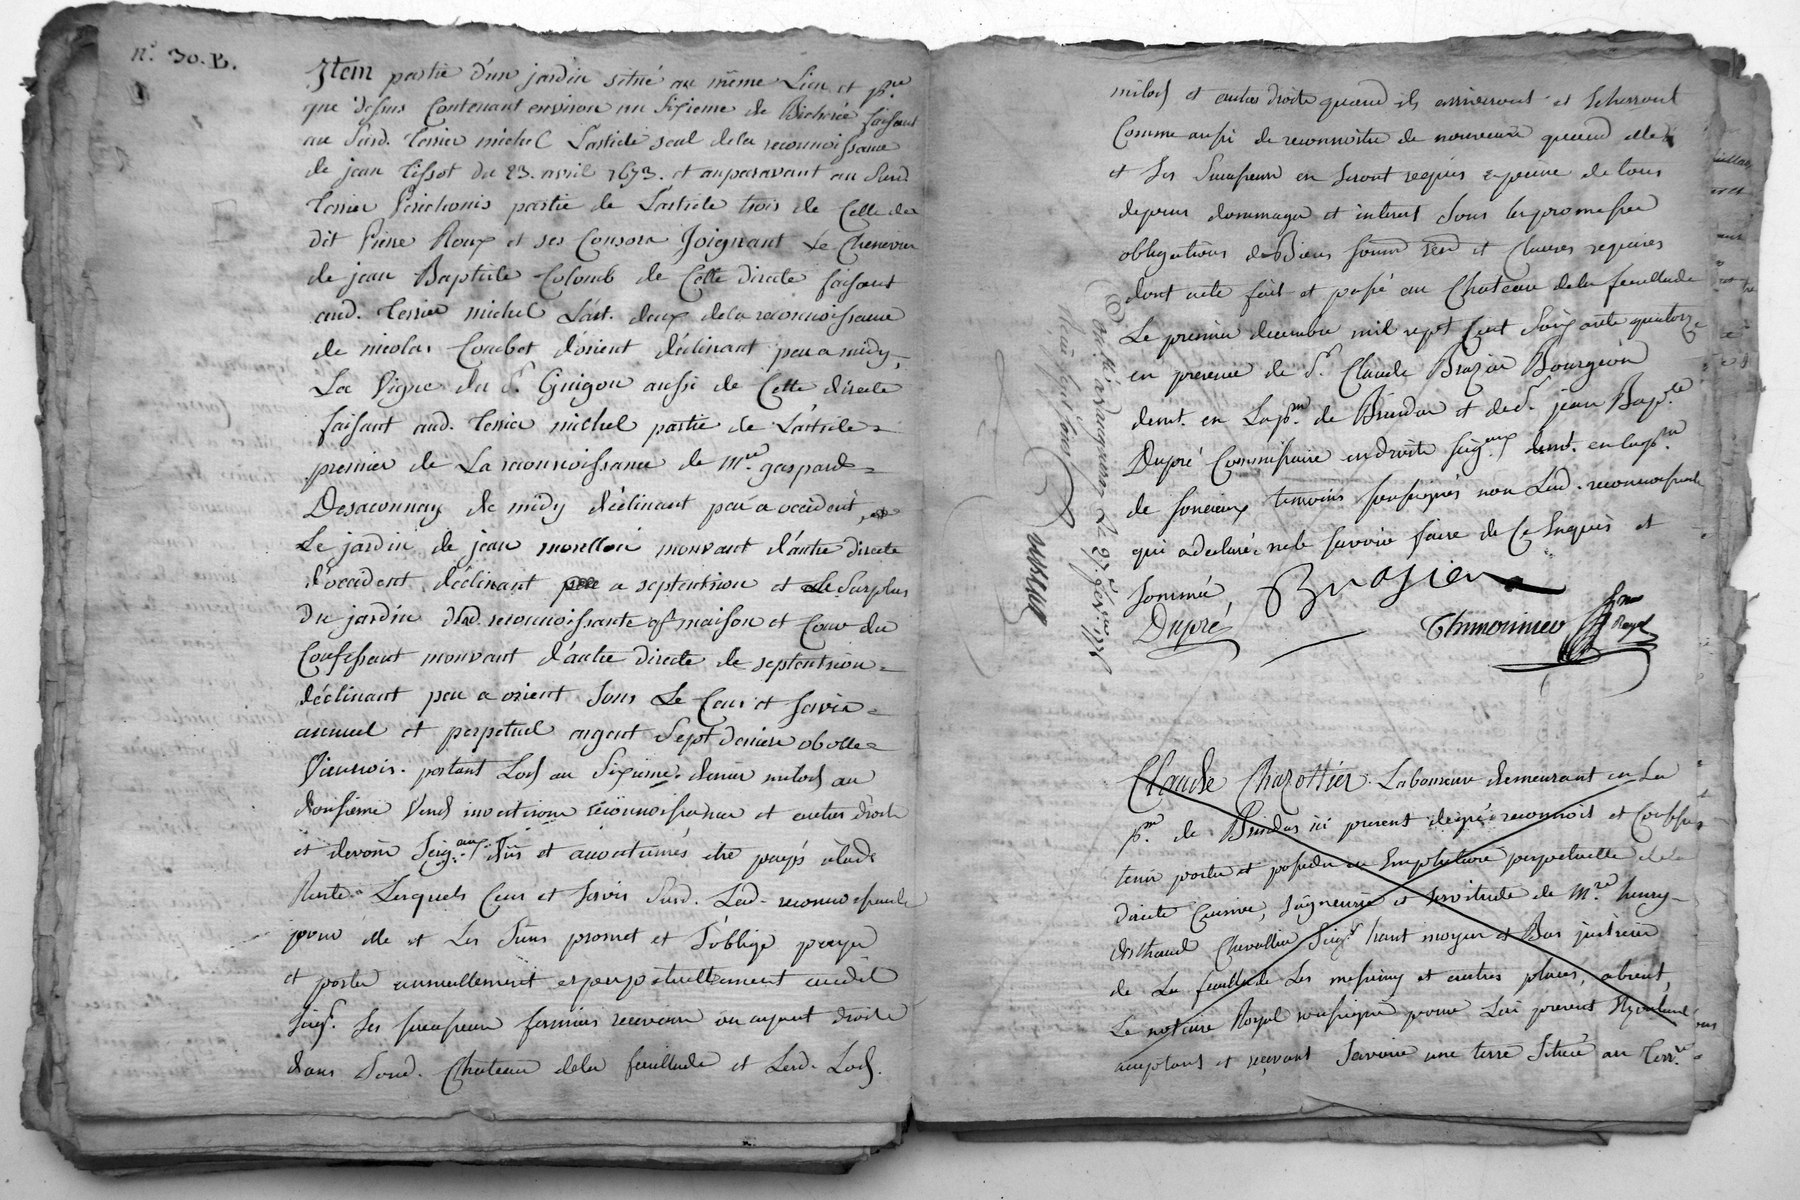 n.° 30. B.
Item partie d'un jardin situé au même Lieu et p.sse
que dessus Contenant environ un Sixieme de Bicherée faisant
au Surd. terrier michel L'article seul de la reconnoissance
de jean tissot du 23. avril 1673. et auparavant au Surd.
terrier Perichonis partie de L'article trois de Celle des
dit Pierre Roux et ses Consors Joignant Le Chenevier
de jean Baptiste Colomb de Cette directe faisant
aud. terrier michel L'art. deux de la reconnoissance
de nicolas Combet d'orient déclinant peu a midy,
La Vigne du S.r Guigou aussi de Cette directe
faisant aud. terrier michel partie de L'article
premier de La reconnoissance de M.re gaspard
Desaconnay de midy déclinant peu a occident,
Le jardin de jean morellon mouvant d'autre directe
d'occident déclinant peu a septentrion et Le Surplus
du jardin de lad. reconnoissante maison et Cour du
Confessant mouvant d'autre directe de septentrion
déclinant peu a orient Sous Le Cens et Servis
annuel et perpetuel argent Sept deniers obolle
Viennois. portant Lods au Sixieme denier milods au
douzieme Vends investisons reconnoissances et autres droits
et devoirs Seig.aux dûs et accoutumés etre payés a lad.
Rente Lesquels Cens et Servis Surd. Lad. reconnoissante
pour elle et Les Siens promet et S'oblige payer
et porter annuellement et perpetuellement audit
Seig.r Ses successeurs fermiers receveurs ou ayant droits
dans Soud. Chateau de la feuillade et Lesd. Lods.
milods et autres droits quand ils arriveront et Scherront
Comme aussi de reconnoitre de nouveau quand elle
et Ses Successeurs en Seront requis a peine de tous
depens dommages et interets Sous les promesses
obligations de Biens Soum. ren. et Clauses requises
dont acte fait et passé au Chateau de la feuillade
Le premier decembre mil sept Cent Soixante quatorze
en presence de S.r Claude Brazier Bourgeois
demt. en La p.sse de Brindas et de S.r jean Bap.te
Dupré Commissaire en droits Seig.aux demt. en la p.sse
de Soucieux temoins soussignés non Lad. reconnoissante
qui a declaré ne le Savoir faire de Ce Enquis et
Sommée,
Brasier
Dupré
Thimonnier
Royal
Claude Charottier Laboureur demeurant en La
p.sse de Brindas ici present de gré reconnoit et Confesse
tenir porter et posseder en Emphiteose perpetuelle de la
directe Censive, Seigneurie et Servitude de M.re henry
Chevallier Seig.r haut moyen et Bas justicier
de La feuillade Les messimy et autres places, absent,
Le notaire Royal soussigné pour Lui present Stipulant
acceptant et recevant Savoir une terre Située au terr.re